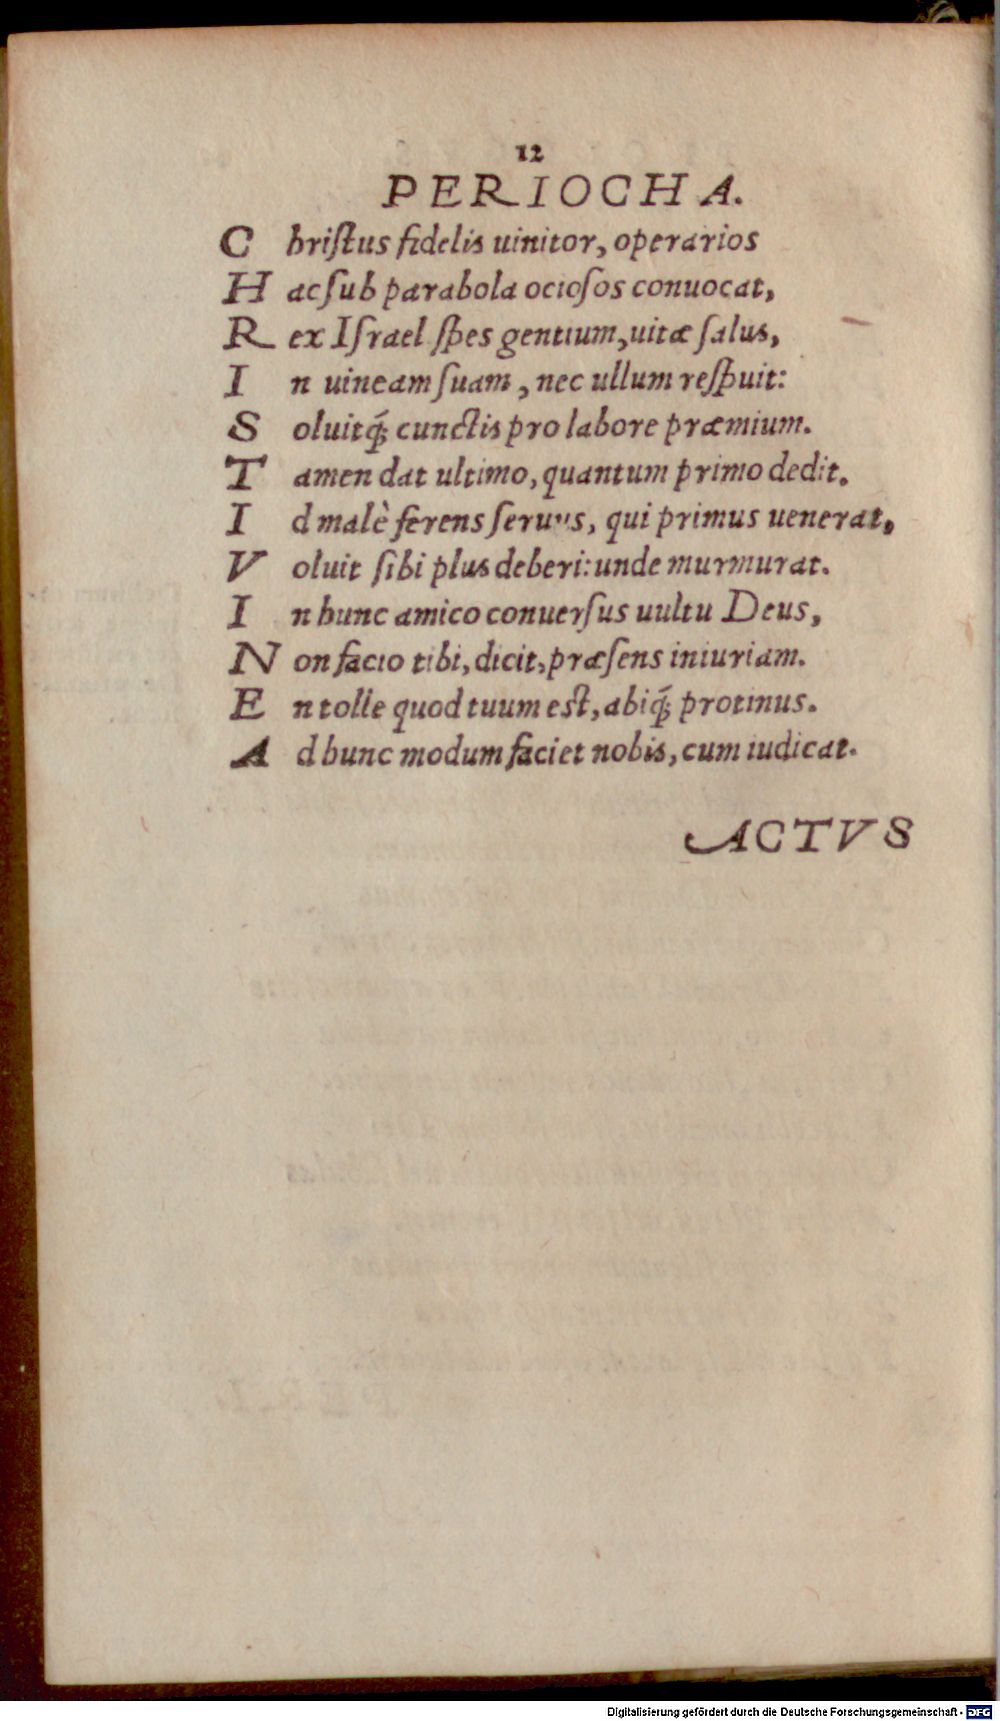 12
PERIOCHA.
C hriſtus fidelis uinitor, operarios
H ac ſub parabola ocioſos conuocat,
R ex Iſrael ſpes gentium, uitæ ſalus,
I n uineam ſuam, nec ullum reſpuit:
S oluitq́; cunctis pro labore præmium.
T amen dat ultimo, quantum primo dedit.
I d malè ferens ſeruus, qui primus uenerat,
V oluit ſibi plus deberi: unde murmurat.
I n hunc amico conuerſus uultu Deus,
N on facio tibi, dicit, præſens iniuriam.
E n tolle quod tuum eſt, abiq́; protinus.
A d hunc modum faciet nobis, cum iudicat.
ACTVS
Digitalisierung gefördert durch die Deutsche Forschungsgemeinschaft - DFG